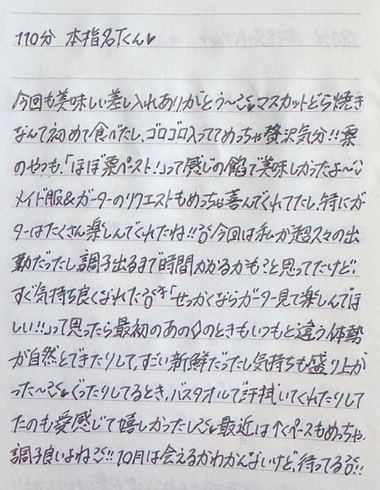 110分 本指名Tくん♥
今回も美味しい差し入れありがとう〜マスカットどら焼き
なんて初めて食べたし、ゴロゴロ入っててめっちゃ贅沢気分!!栗
のやつも、「ほぼ栗ペースト!」って感じの餡で美味しかったよ〜
メイド服&ガーターのリクエストもめっちゃ喜んでくれてたし、特にガー
ターはたくさん楽しんでくれたね!!今回は私が超久々の出
勤だったし調子出るまで時間かかるかも?と思ってたけど、
すぐ気持ち良くなれた「せっかくならガーター見て楽しんでほ
しい!!」って思ったら最初のあの◇のときもいつもと違う体勢
が自然とできたりして、すごい新鮮だったし気持ちも盛り上が
った〜ぐったりしてるとき、バスタオルで汗拭いてくれたりして
たのも愛感じて嬉しかったし最近は↑くペースもめっちゃ
調子良いよね!!10月は会えるかわかんないけど、待ってる!!